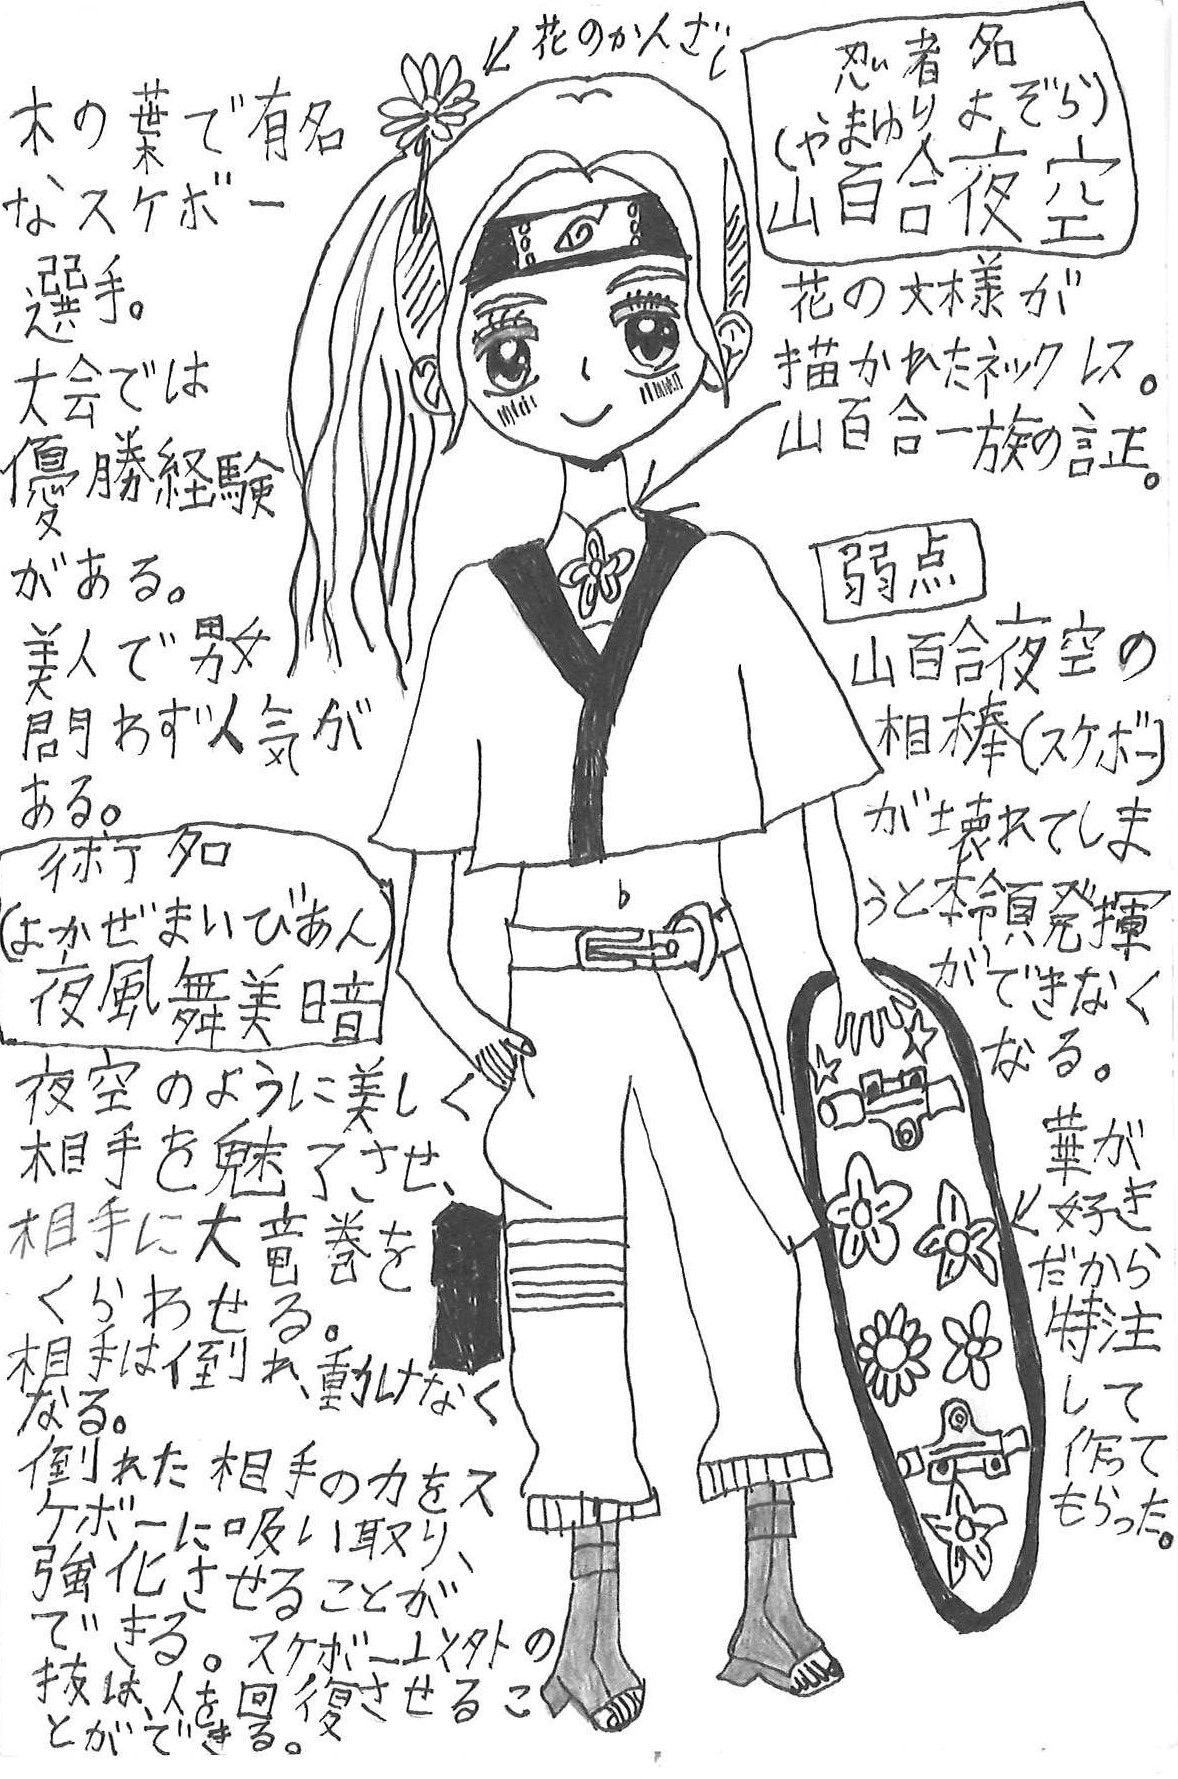 花のかんざし
忍い者名
(やまゆり よぞら)
山百合夜空
木の葉で有名
なスケボー
選手。
大会では
優勝経験
がある。
美人で男女
問わず人気が
ある。
花の文様が
描かれたネックレス。
山百合一族の証。
弱点
山百合夜空の
相棒(スケボー)
が壊れてしま
うと本領発揮
ができなく
なる。
華が
好き
だから
特注
して
作って
もらった。
術名
(よかぜまいびあん)
夜風舞美暗
夜空のように美しく
相手を魅了させ、
相手に大竜巻を
くらわせる。
相手は倒れ、動けなく
なる。
倒れた相手の力をス
ケボーに吸い取り、
強化させることが
できる。スケボー以外の
技は、人を回復させるこ
とができる。